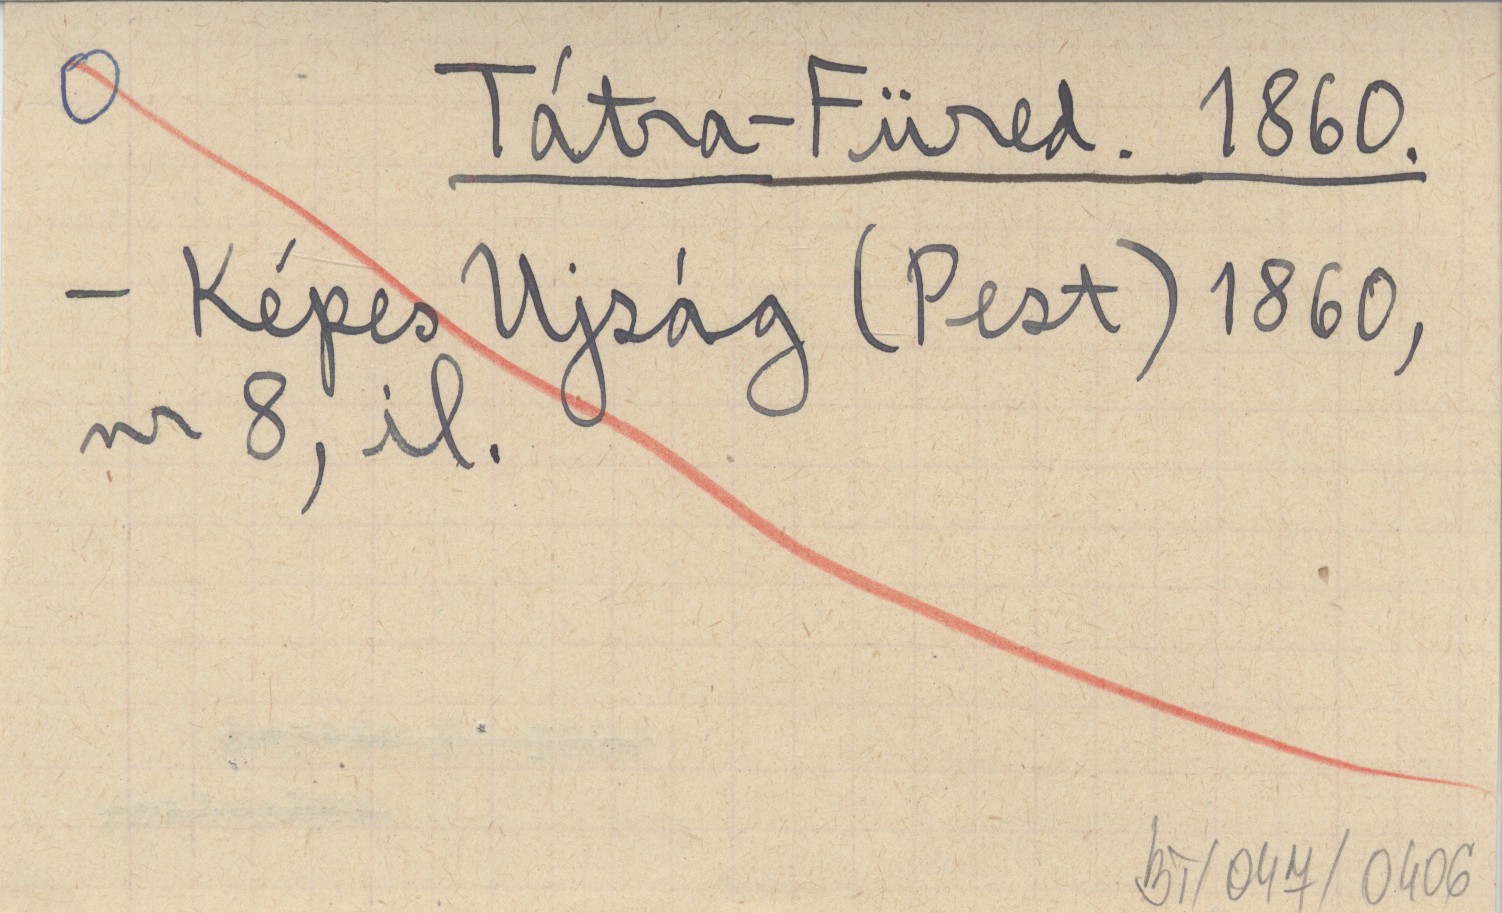 O
Tátra-Füred. 1860.
- Képes Ujság (Pest) 1860,
nr 8, il.
BT/047/0406